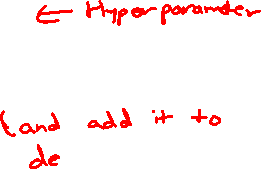 ← Hyperparameter
(and add it to
de